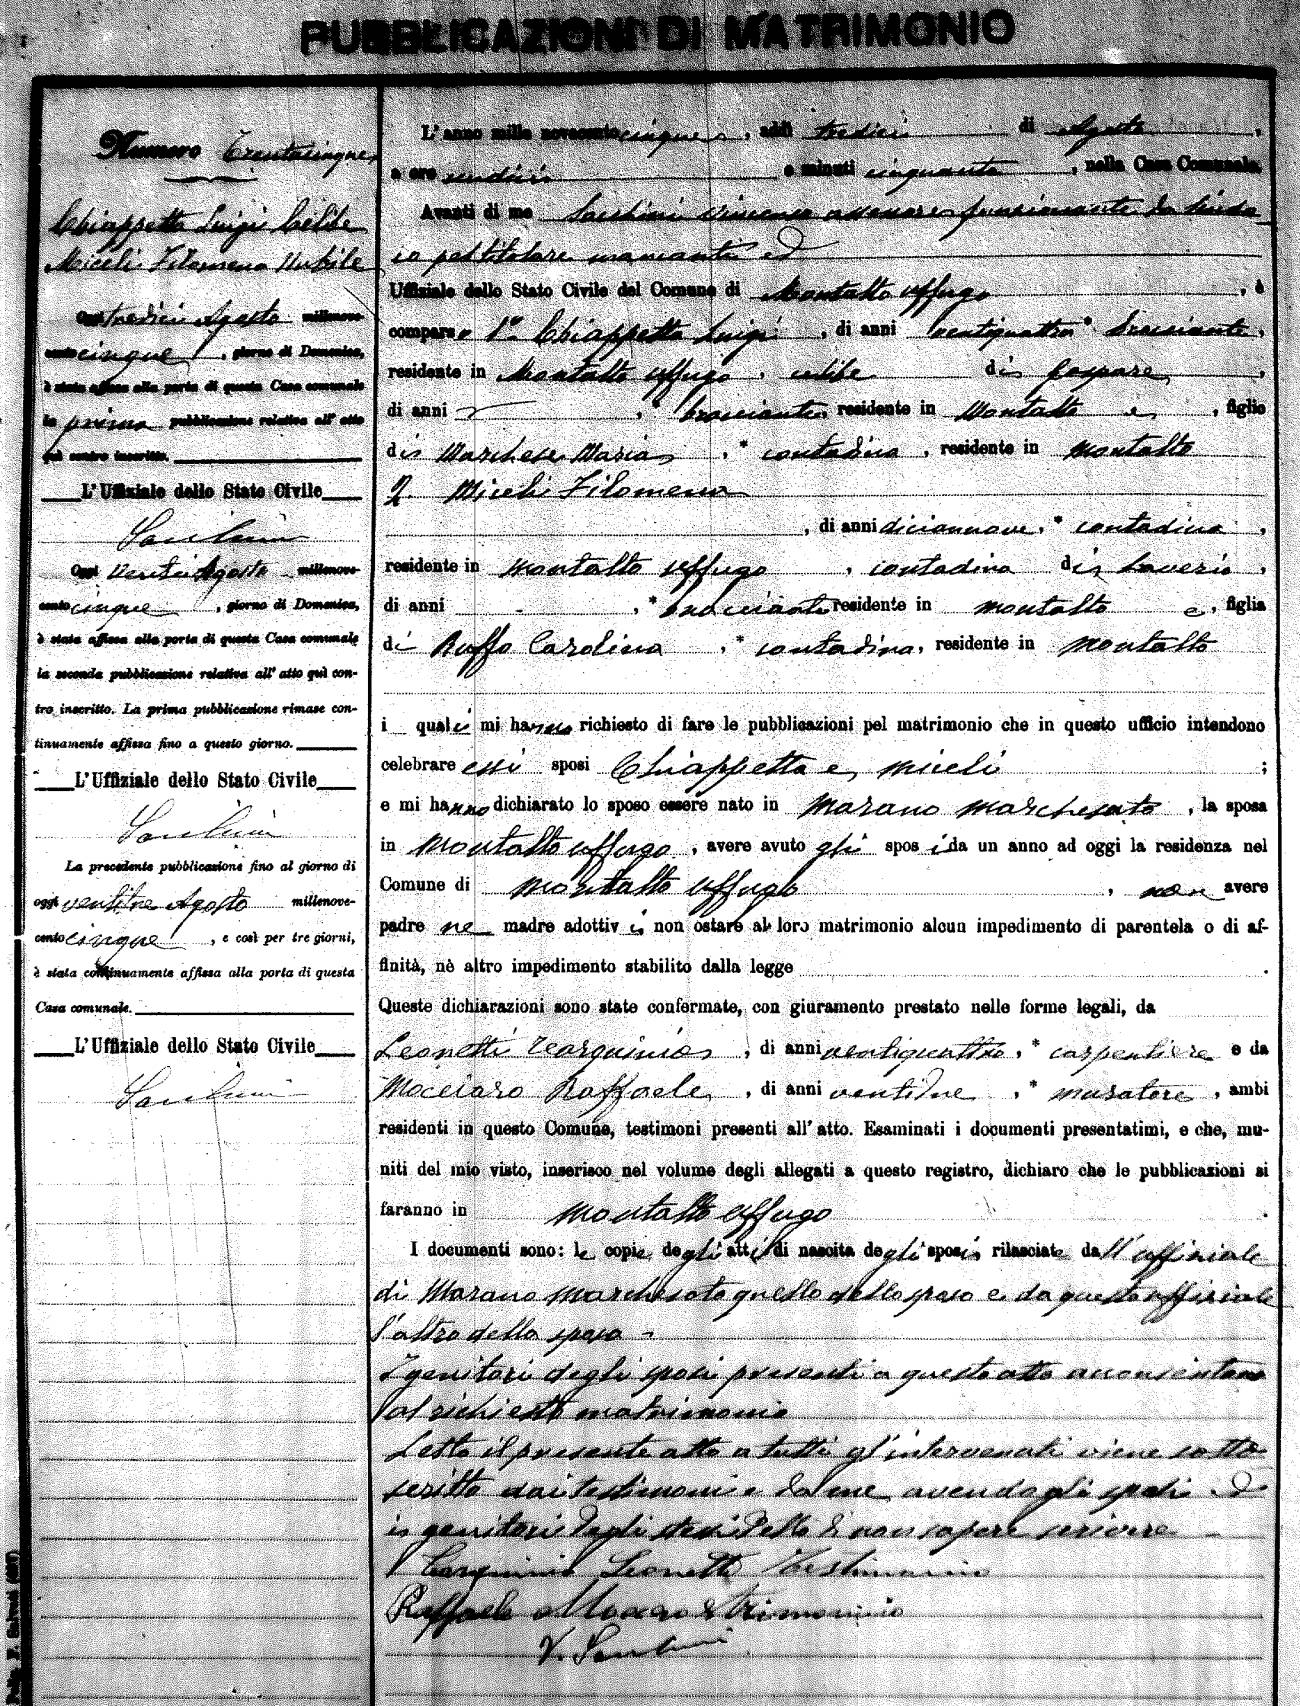 PUBBLICAZIONI DI MATRIMONIO
Numero Trentacinque
Chiappetta Luigi Celibe
Miceli Filomena Nubile
Oggi tredici Agosto millenove-
cento cinque, giorno di Domenica,
è stata affissa alla porta di questa Casa comunale
la prima pubblicazione relativa all' atto
quì contro inscritto.
L' Uffiziale dello Stato Civile
Oggi venti Agosto millenove-
cento cinque, giorno di Domenica,
è stata affissa alla porta di questa Casa comunale
la seconda pubblicazione relativa all' atto quì con-
tro inscritto. La prima pubblicazione rimase con-
tinuamente affissa fino a questo giorno.
L' Uffiziale dello Stato Civile
La precedente pubblicazione fino al giorno di
oggi ventitre Agosto millenove-
cento cinque, e così per tre giorni,
è stata continuamente affissa alla porta di questa
Casa comunale.
L' Uffiziale dello Stato Civile
L' anno mille novecento cinque, addì tredici di Agosto,
a ore undici e minuti cinquanta, nella Casa Comunale.
Avanti di me Vincenzo assessore funzionante da Sinda
co pel titolare mancante ed
Uffiziale dello Stato Civile del Comune di Montalto Uffugo, è
comparso 1° Chiappetta Luigi, di anni ventiquattro * bracciante,
residente in Montalto Uffugo, celibe di Gaspare,
di anni , * bracciante residente in Montalto e, figlio
di Marchese Maria, * contadina, residente in Montalto
2. Miceli Filomena
, di anni diciannove, * contadina,
residente in Montalto Uffugo, contadina di Saverio,
di anni - , * bracciante residente in Montalto e, figlia
di Ruffo Carolina, * contadina, residente in Montalto
i quali mi hanno richiesto di fare le pubblicazioni pel matrimonio che in questo ufficio intendono
celebrare essi sposi Chiappetta e Miceli ;
e mi hanno dichiarato lo sposo essere nato in Marano Marchesato, la sposa
in Montalto Uffugo, avere avuto gli sposi da un anno ad oggi la residenza nel
Comune di Montalto Uffugo, non avere
padre ne madre adottivi, non ostare al loro matrimonio alcun impedimento di parentela o di af-
finità, nè altro impedimento stabilito dalla legge .
Queste dichiarazioni sono state confermate, con giuramento prestato nelle forme legali, da
Leonetti Tarquinio, di anni ventiquattro, * carpentiere e da
Mocciaro Raffaele, di anni ventidue, * muratore, ambi
residenti in questo Comune, testimoni presenti all' atto. Esaminati i documenti presentatimi, e che, mu-
niti del mio visto, inserisco nel volume degli allegati a questo registro, dichiaro che le pubblicazioni si
faranno in Montalto Uffugo .
I documenti sono: le copie degli atti di nascita degli sposi rilasciate dall'uffiziale
di Marano Marchesato quello dello sposo e da questo uffiziale
l'altro della sposa -
I genitori degli sposi presenti a questo atto acconsentono
al richiesto matrimonio
Letto il presente atto a tutti gl'intervenuti viene sotto
scritto dai testimoni e da me, avendo gli sposi ed
i genitori degli stessi detto di non sapere scrivere
Tarquinio Leonetti Testimonio
Raffaele